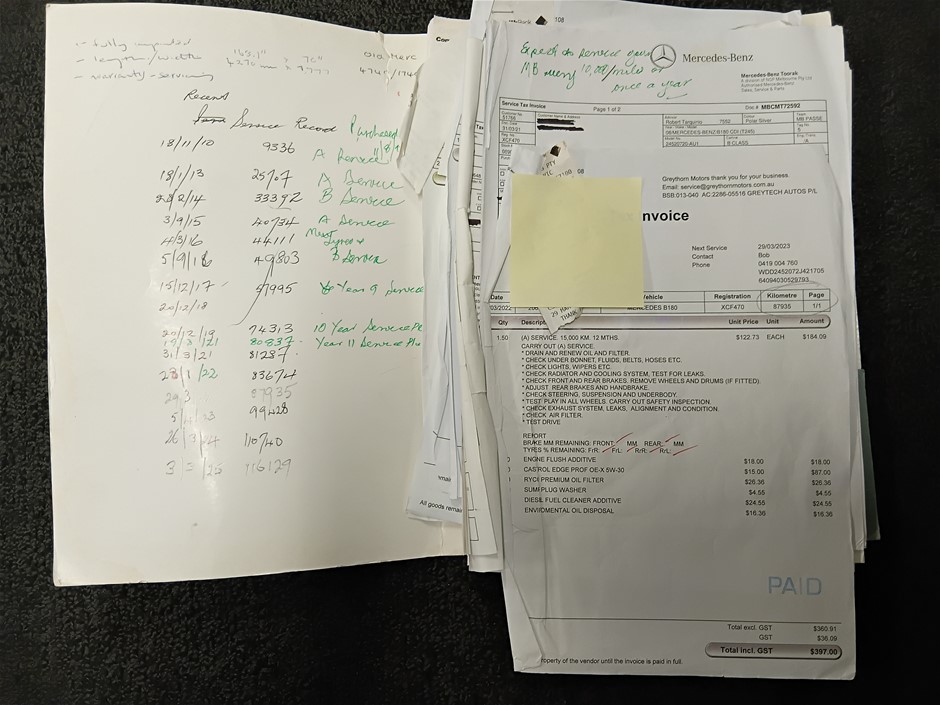 - fully
- length/width
- warranty - servicing
Recent
Service Record
Purchased
18/11/10 9336 A Service
18/1/13 25707 A Service
2/14 33392 B Service
3/9/15 40734 A Service
4/3/16 44111 Must
5/9/16 49803 B Service
15/12/17 57995 Year 9 Service
20/12/18
20/12/19 74313 10 Year Service
80837 Year 11 Service
31/3/21 81287
28/1/22 83674
29 3 87935
99428
26 3 24 110740
3 116129
All goods remai
108
Expect to service your
MB every 10,000/miles or
once a year
Mercedes-Benz
Mercedes-Benz Toorak
Service Tax Invoice
Page 1 of 2
Doc # MBCMT72592
Customer Name & Address
51755
31/03/21
XCF470
Robert Tarquinio 7552
Polar Silver
MB PASSE
08/MERCEDES-BENZ/B180 CDI (T245)
24520720-AU1
B CLASS
Greythorn Motors thank you for your business.
Email: service@greythornmotors.com.au
BSB 013-040 AC:2286-05516 GREYTECH AUTOS P/L
nvoice
Next Service 29/03/2023
Contact Bob
Phone 0419 004 760
WDD2452072J421705
64094030529793
Date ehicle Registration Kilometre Page
03/2022 MERCEDES B180 XCF470 87935 1/1
29 HA
THANK
Qty Descripti Unit Price Unit Amount
1.50 (A) SERVICE. 15,000 KM. 12 MTHS. $122.73 EACH $184.09
CARRY OUT (A) SERVICE.
* DRAIN AND RENEW OIL AND FILTER.
* CHECK UNDER BONNET, FLUIDS, BELTS, HOSES ETC.
* CHECK LIGHTS, WIPERS ETC.
* CHECK RADIATOR AND COOLING SYSTEM, TEST FOR LEAKS.
* CHECK FRONT AND REAR BRAKES. REMOVE WHEELS AND DRUMS (IF FITTED).
* ADJUST REAR BRAKES AND HANDBRAKE.
* CHECK STEERING, SUSPENSION AND UNDERBODY.
* TEST PLAY IN ALL WHEELS. CARRY OUT SAFETY INSPECTION.
* CHECK EXHAUST SYSTEM, LEAKS, ALIGNMENT AND CONDITION.
* CHECK AIR FILTER.
* TEST DRIVE
REPORT
BRAKE MM REMAINING: FRONT: MM REAR: MM
TYRES % REMAINING: F/R: F/L: R/R: R/L:
ENGINE FLUSH ADDITIVE $18.00 $18.00
CASTROL EDGE PROF OE-X 5W-30 $15.00 $87.00
RYCO PREMIUM OIL FILTER $26.36 $26.36
SUMP PLUG WASHER $4.55 $4.55
DIESEL FUEL CLEANER ADDITIVE $24.55 $24.55
ENVIROMENTAL OIL DISPOSAL $16.36 $16.36
PAID
Total excl. GST $360.91
GST $36.09
Total incl. GST $397.00
roperty of the vendor until the invoice is paid in full.